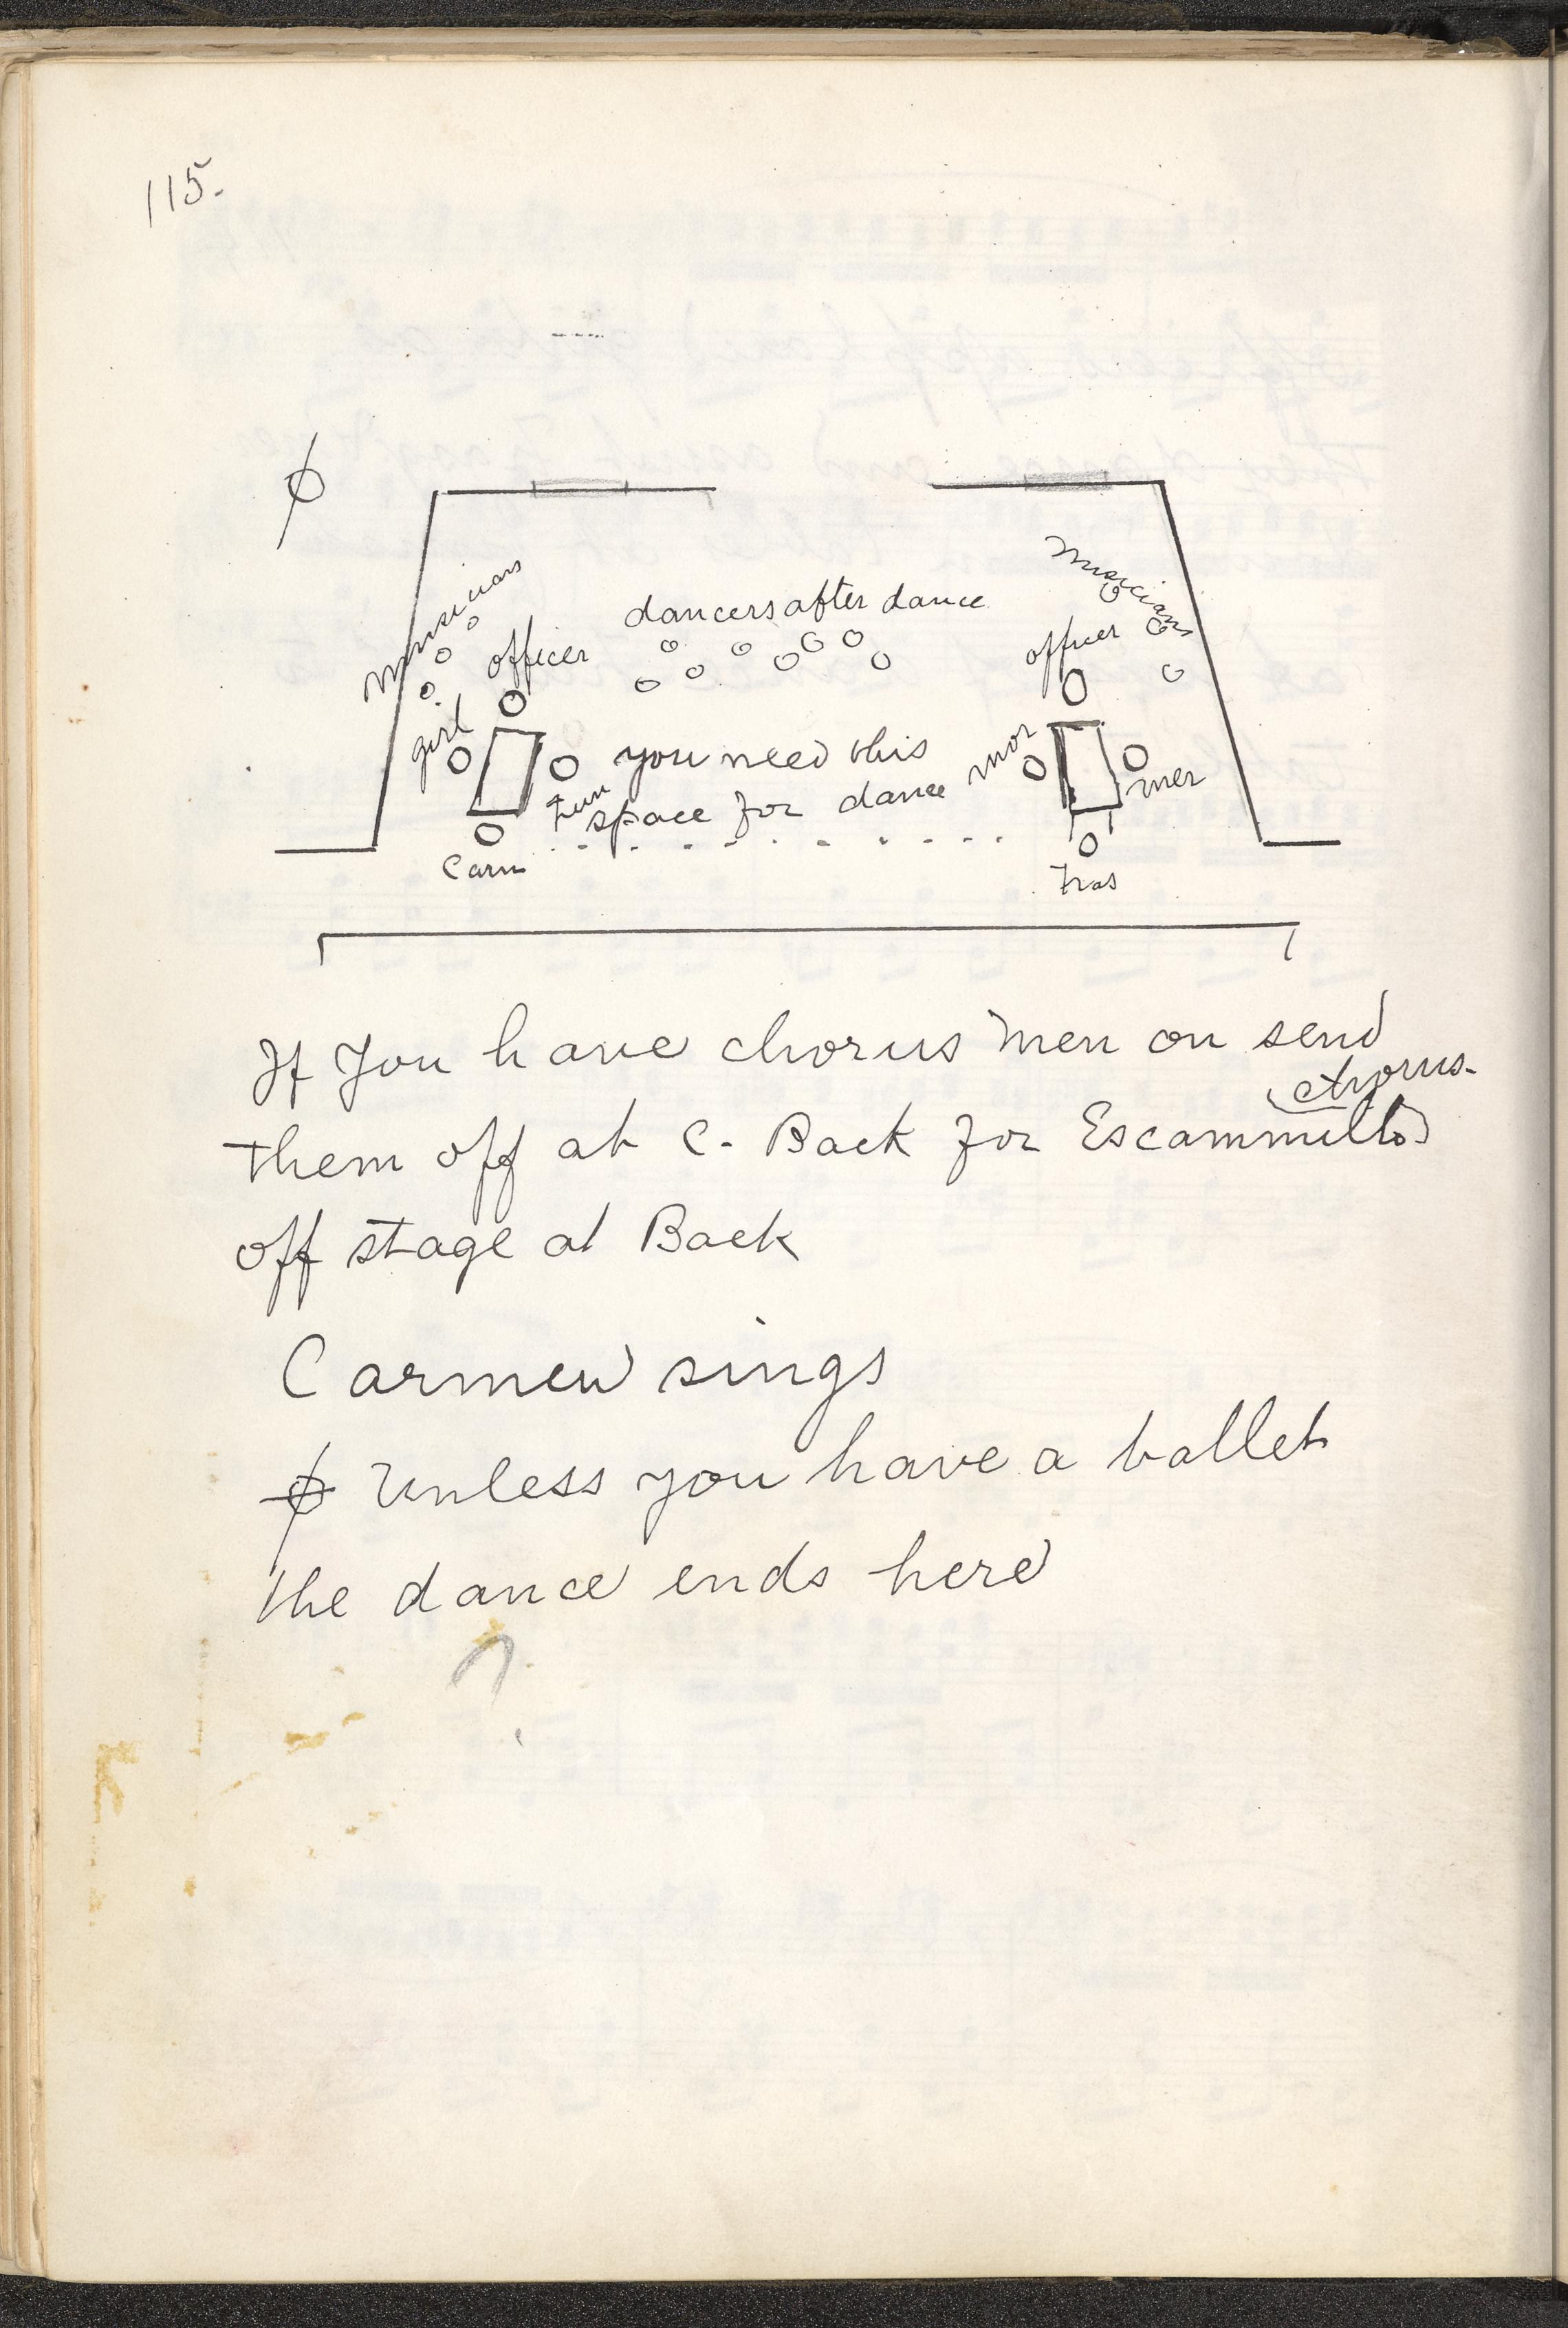 115.
φ
musicians
musicians
dancers after dance
officer
officer
girl
you need this
mor
Zun
space for dance
mer
Carm
Fras
If You have chorus men on send
chorus.
them off at C. Back for Escammillo
off stage at Back
Carmen sings
φ Unless you have a ballet
the dance ends here
?